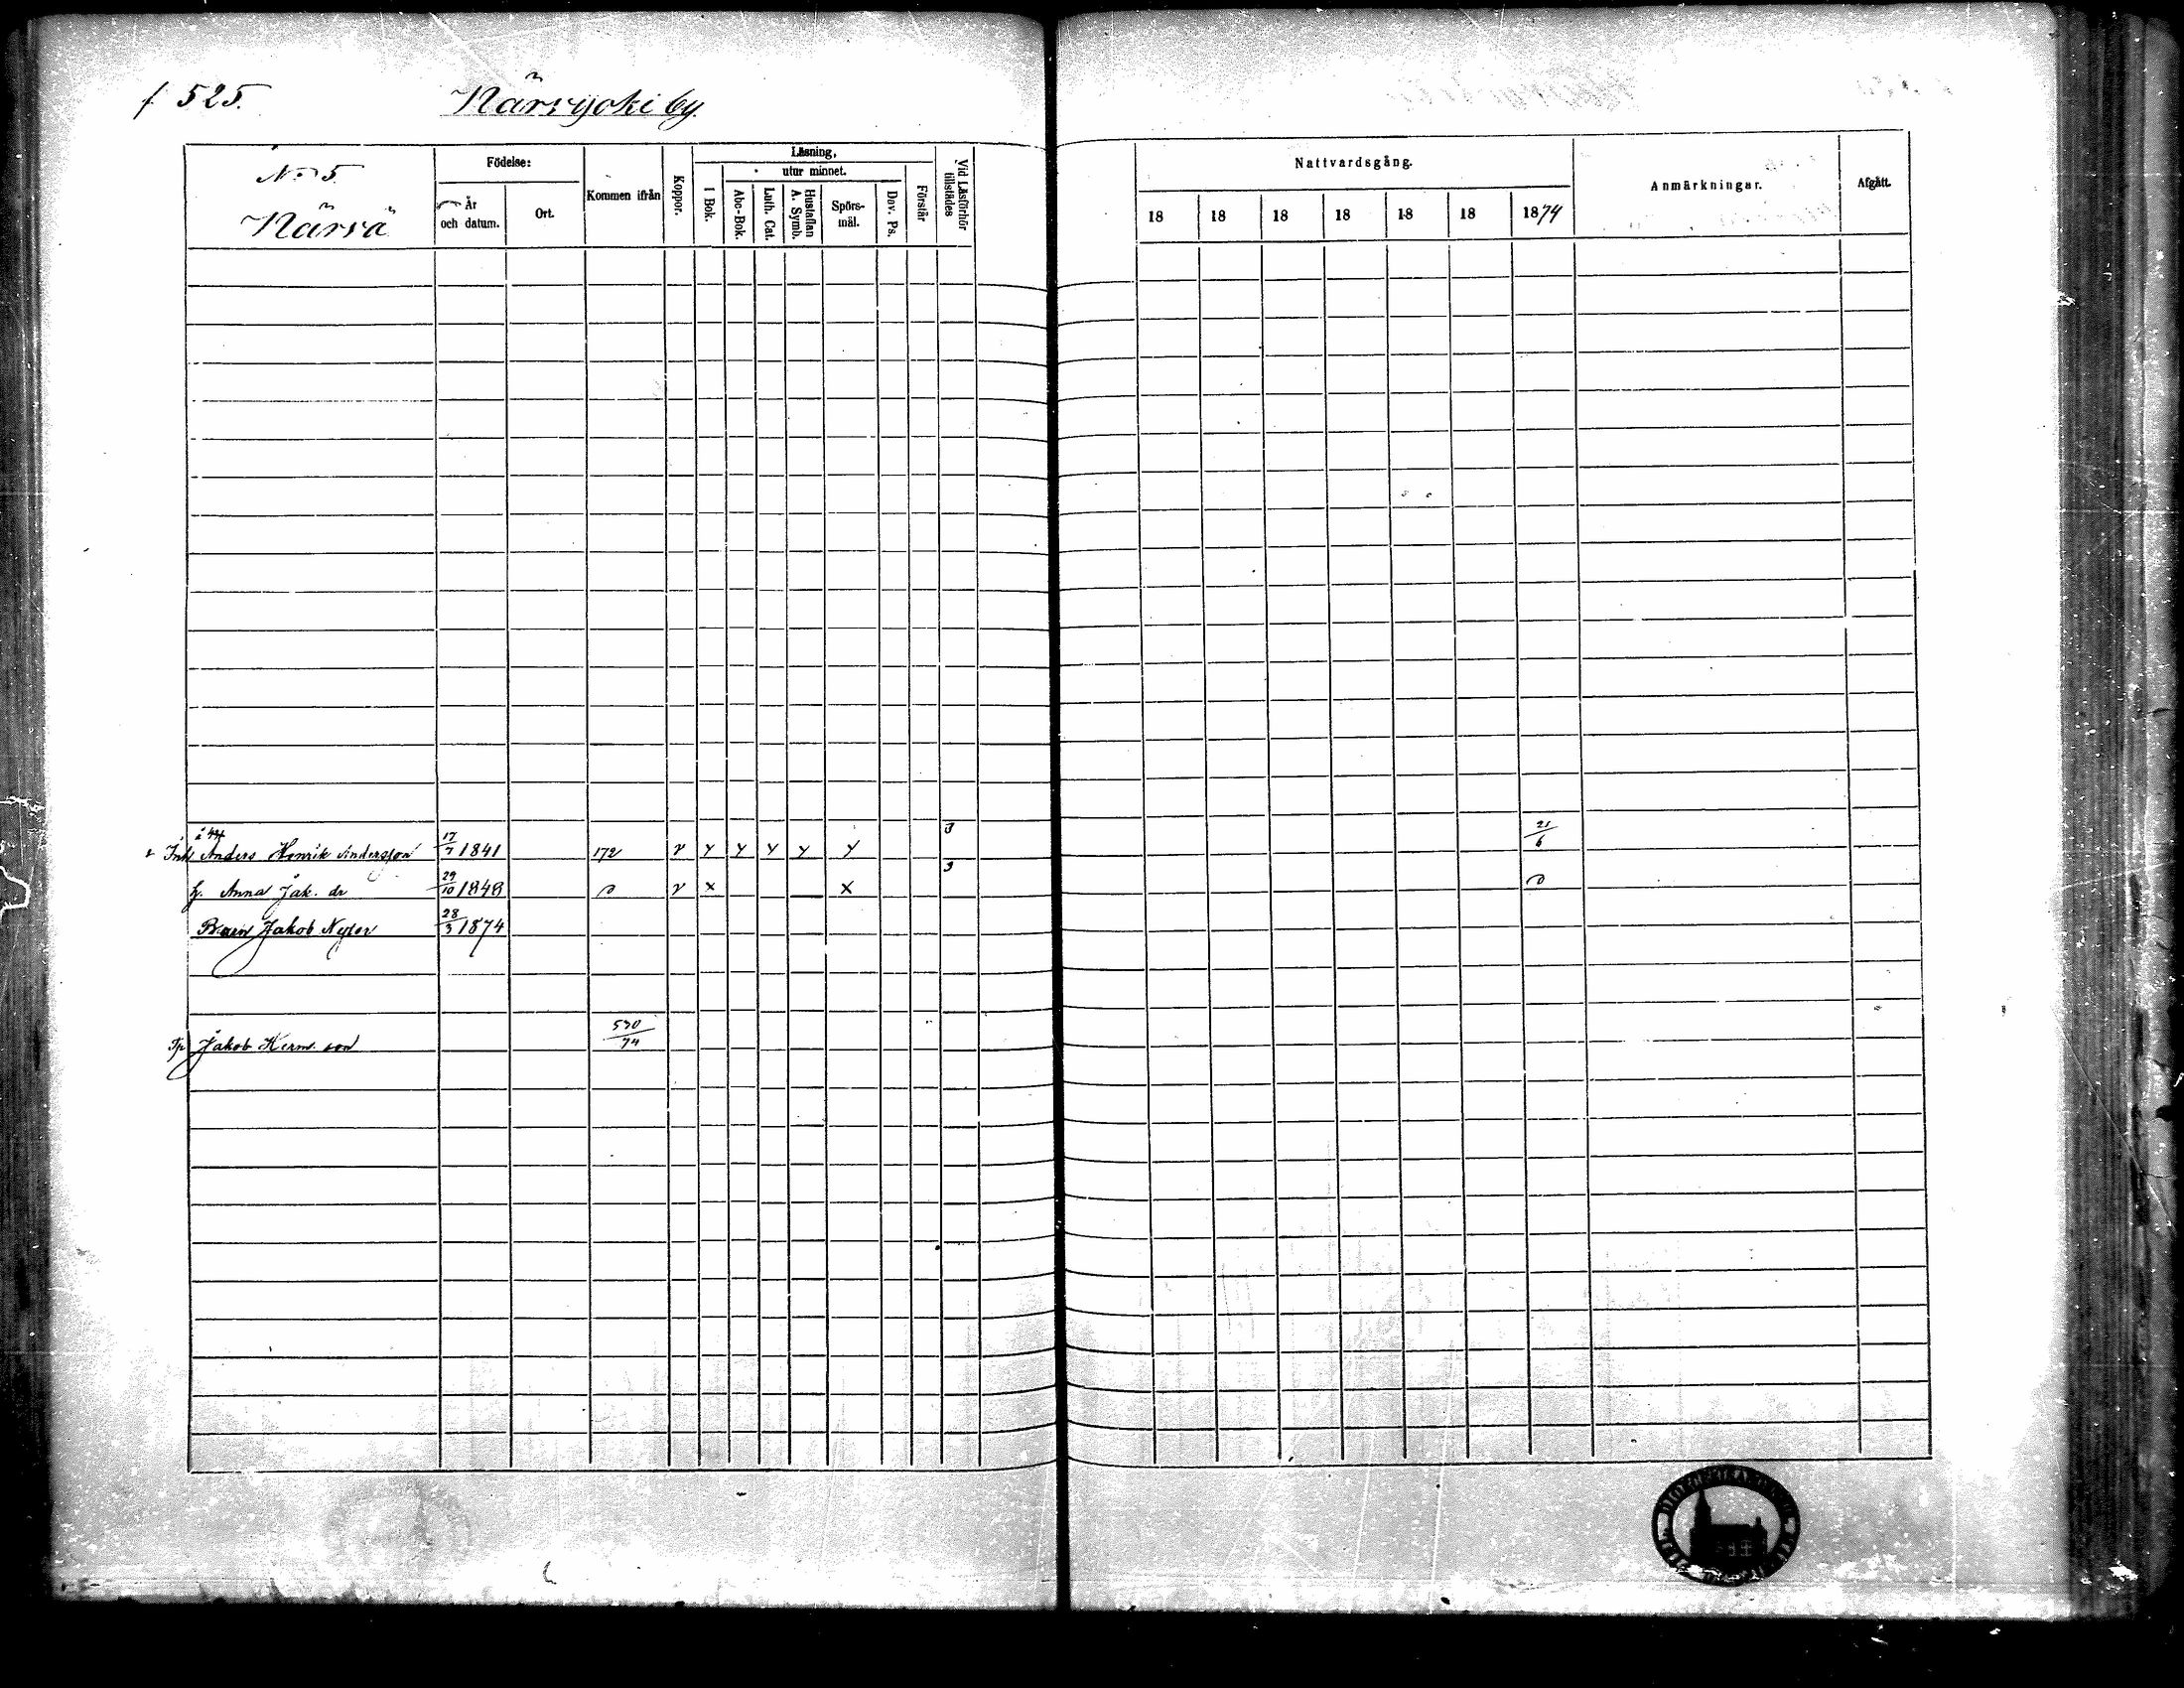 f 525. Närvijoki by.
No 5.
Närvä
Födelse:
År och datum.
Ort.
Kommen ifrån
Koppor.
Läsning,
utur minnet.
I Bok.
Abc-Bok.
Luth. Cat.
Hustaflan A. Symb.
Spörsmål.
Dav. Ps.
Förstår
Vid Läsförhör tillstädes
Nattvardsgång.
18 18 18 18 18 18 1874
Anmärkningar.
Afgått.
Anders Henrik Andersson 17/7 1841 172 v y y y y y 3 21/6
h. Anna Jak. dr 29/10 1848 v x x 3
Jakob 28/3 1874
Jakob Herm. son 530/74